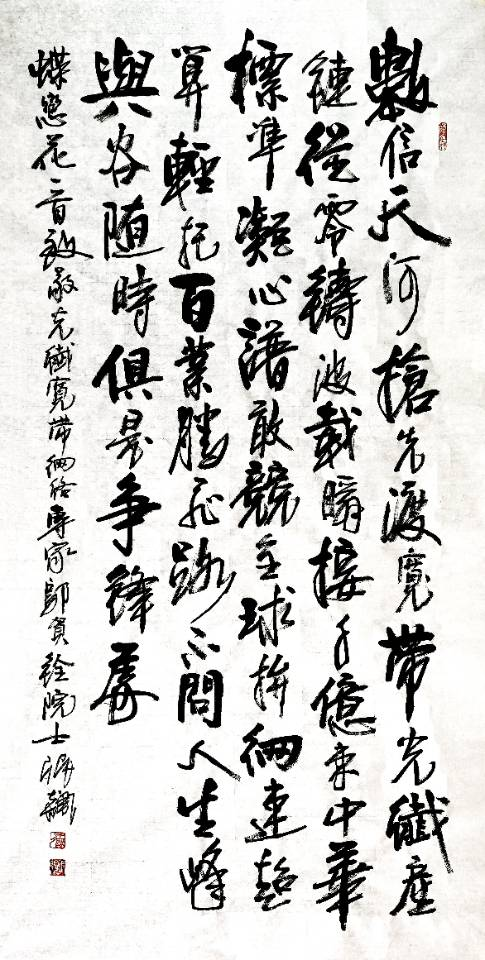 數信天河搶先渡寬帶光纖產
鏈從零鑄波載瞬接千億束中華
標準凝心譜敢競全球拚網速超
算輕托百業騰飛路不問人生峰
與谷隨時俱是爭鋒處
蝶戀花一首致敬光纖寬帶網絡專家鄔賀銓院士張